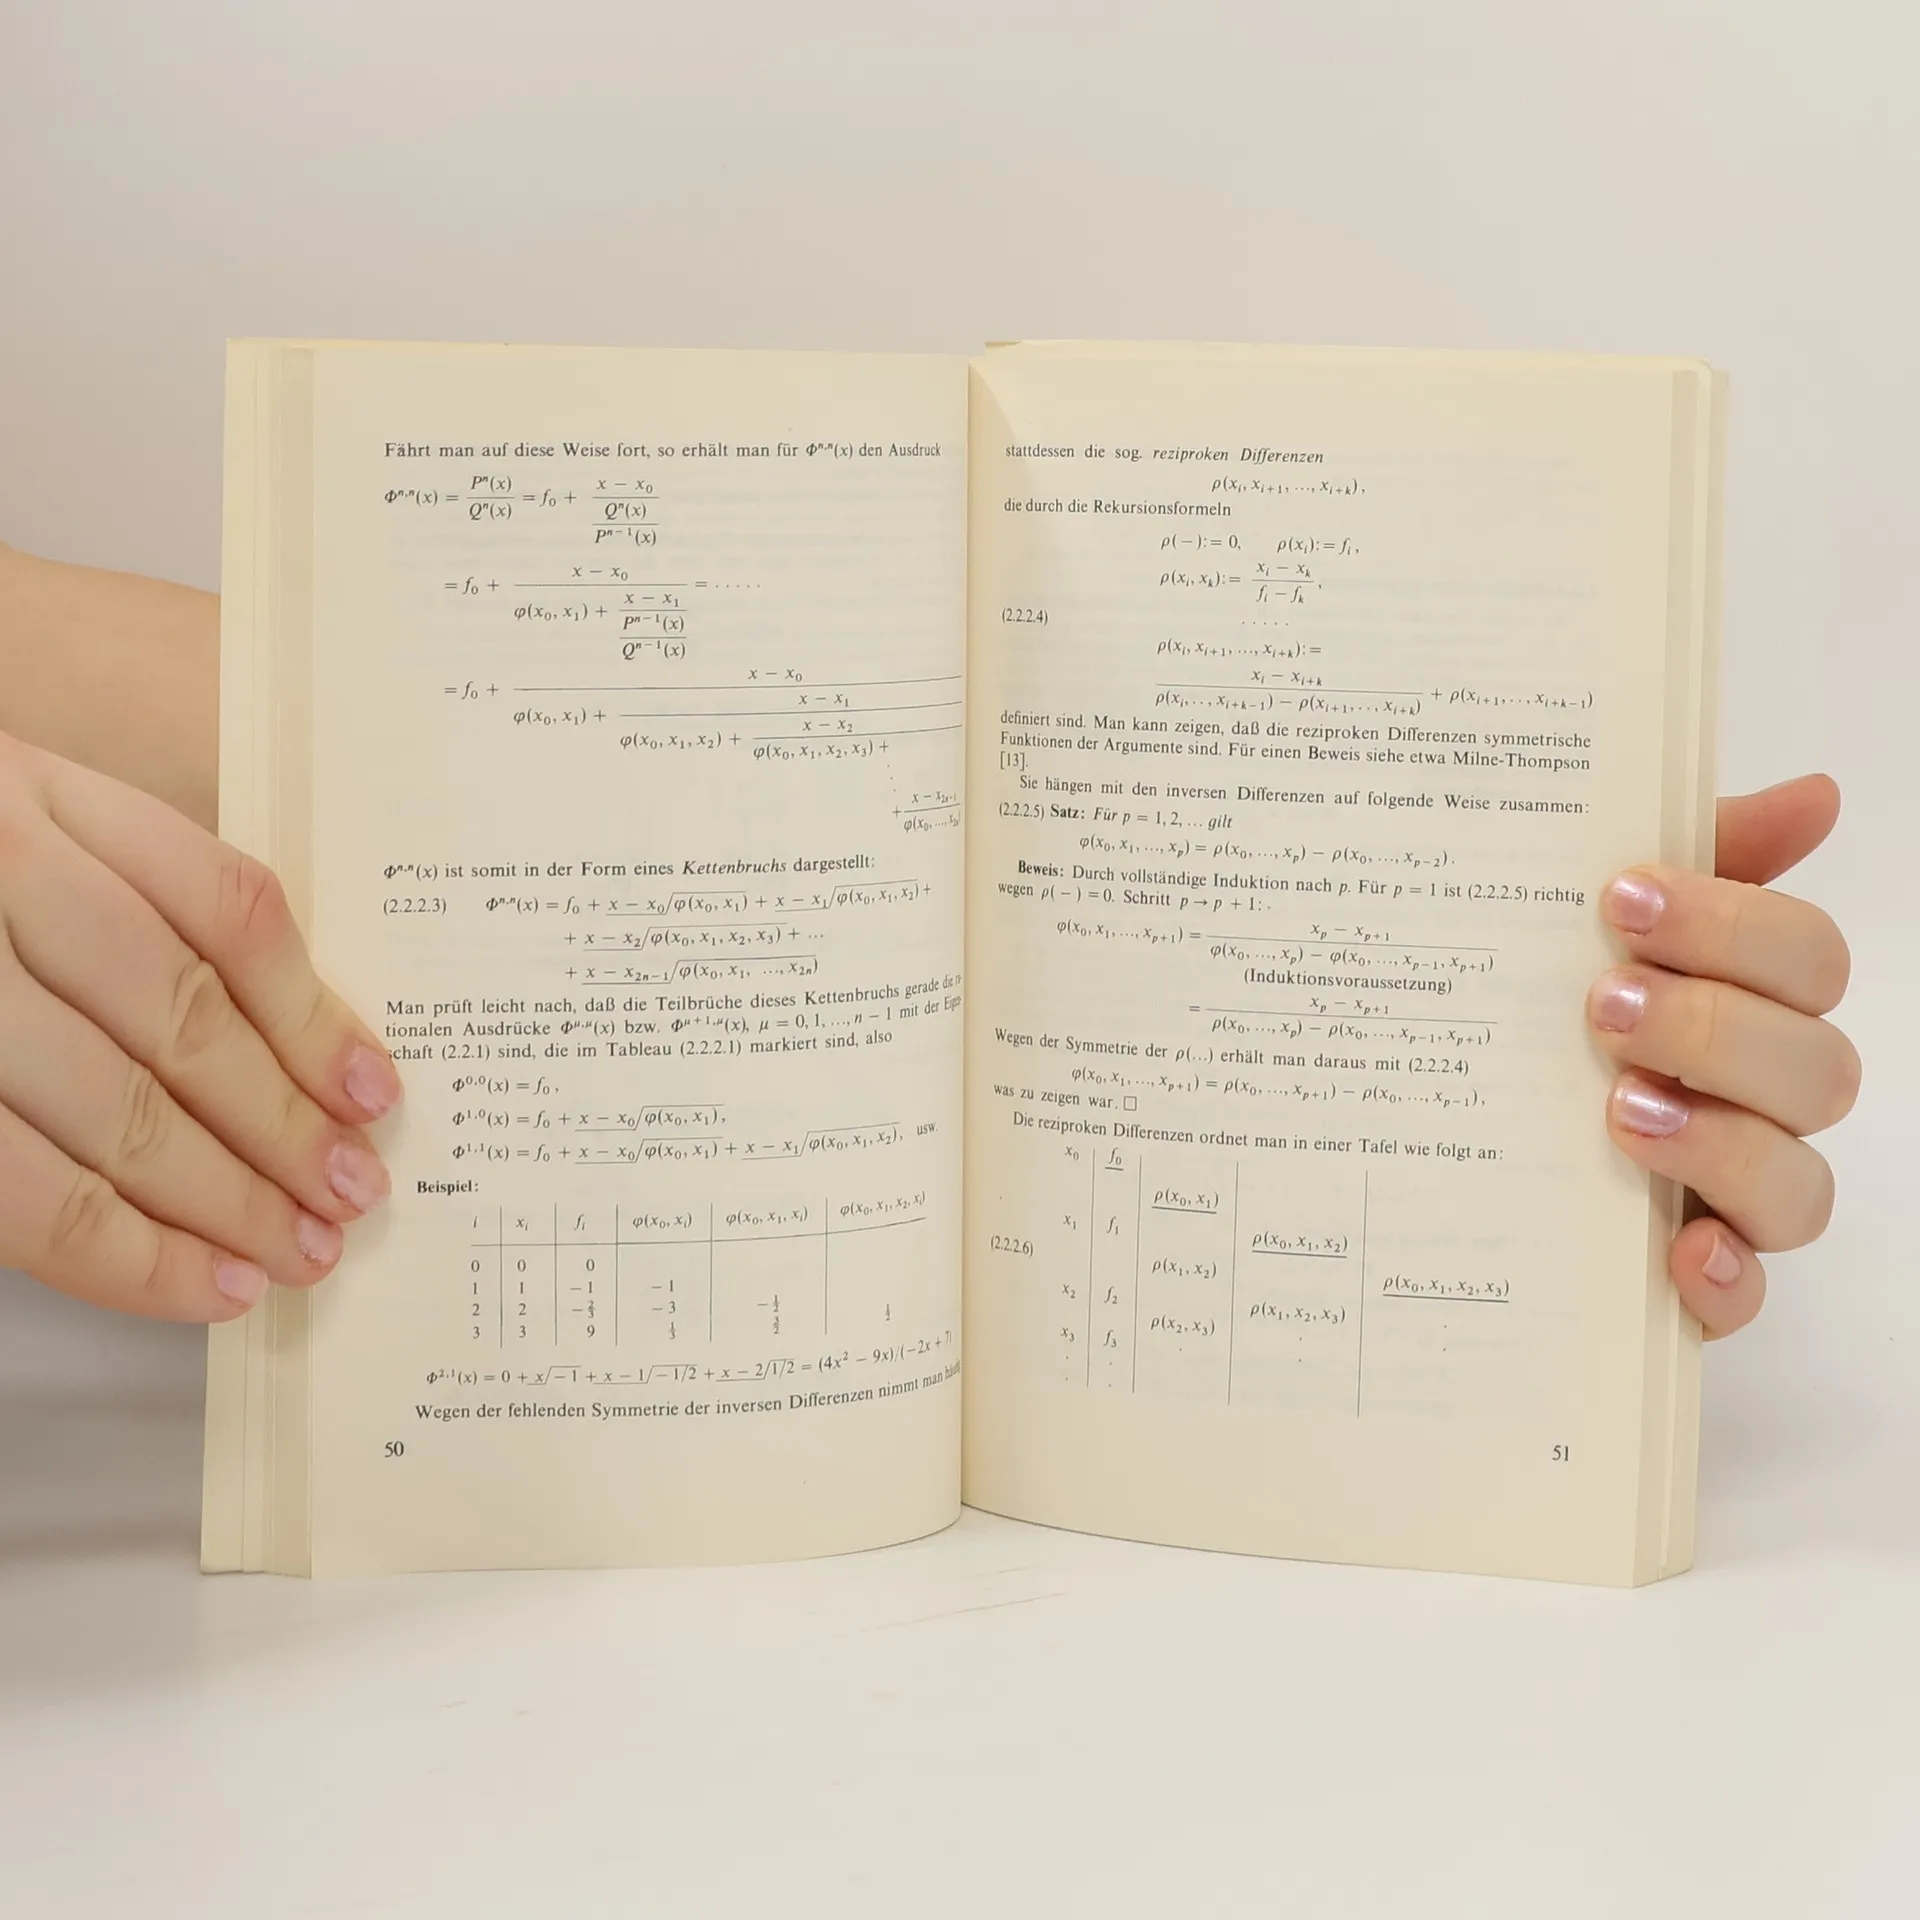 Fährt man auf diese Weise fort, so erhält man für Φⁿ·ⁿ(x) den Ausdruck
Φⁿ·ⁿ(x) = Pⁿ(x)/Qⁿ(x) = f₀ + (x − x₀)/(Qⁿ(x)/Pⁿ⁻¹(x))
= f₀ + (x − x₀)/(φ(x₀, x₁) + (x − x₁)/(Pⁿ⁻¹(x)/Qⁿ⁻¹(x))) = .....
= f₀ + (x − x₀)/(φ(x₀, x₁) + (x − x₁)/(φ(x₀, x₁, x₂) + (x − x₂)/(φ(x₀, x₁, x₂, x₃) +
+ (x − x₂ₙ₋₁)/φ(x₀, ..., x₂ₙ)
Φⁿ·ⁿ(x) ist somit in der Form eines Kettenbruchs dargestellt:
(2.2.2.3) Φⁿ·ⁿ(x) = f₀ + x − x₀/φ(x₀, x₁) + x − x₁/φ(x₀, x₁, x₂) +
+ x − x₂/φ(x₀, x₁, x₂, x₃) + ...
+ x − x₂ₙ₋₁/φ(x₀, x₁, ..., x₂ₙ)
Man prüft leicht nach, daß die Teilbrüche dieses Kettenbruchs gerade die
tionalen Ausdrücke Φμ,μ(x) bzw. Φμ+1,μ(x), μ = 0, 1, ..., n − 1 mit der
schaft (2.2.1) sind, die im Tableau (2.2.2.1) markiert sind, also
Φ⁰·⁰(x) = f₀,
Φ¹·⁰(x) = f₀ + x − x₀/φ(x₀, x₁),
Φ¹·¹(x) = f₀ + x − x₀/φ(x₀, x₁) + x − x₁/φ(x₀, x₁, x₂), usw.
Beispiel:
i xᵢ fᵢ φ(x₀, xᵢ) φ(x₀, x₁, xᵢ) φ(x₀, x₁, x₂, xᵢ)
0 0 0
1 1 −1 −1
2 2 −2/3 −3 −1/2
3 3 9 1/3 3/2 1/2
Φ²·¹(x) = 0 + x/−1 + x − 1/−1/2 + x − 2/1/2 = (4x² − 9x)/(−2x + 7)
Wegen der fehlenden Symmetrie der inversen Differenzen nimmt man häufig
50
stattdessen die sog. reziproken Differenzen
ρ(xᵢ, xᵢ₊₁, ..., xᵢ₊ₖ),
die durch die Rekursionsformeln
ρ(−):= 0, ρ(xᵢ):= fᵢ,
ρ(xᵢ, xₖ):= (xᵢ − xₖ)/(fᵢ − fₖ),
(2.2.2.4) .....
ρ(xᵢ, xᵢ₊₁, ..., xᵢ₊ₖ):=
(xᵢ − xᵢ₊ₖ)/(ρ(xᵢ, .., xᵢ₊ₖ₋₁) − ρ(xᵢ₊₁, .., xᵢ₊ₖ)) + ρ(xᵢ₊₁, .., xᵢ₊ₖ₋₁)
definiert sind. Man kann zeigen, daß die reziproken Differenzen symmetrische
Funktionen der Argumente sind. Für einen Beweis siehe etwa Milne-Thompson
[13].
Sie hängen mit den inversen Differenzen auf folgende Weise zusammen:
(2.2.2.5) Satz: Für p = 1, 2, ... gilt
φ(x₀, x₁, ..., xₚ) = ρ(x₀, ..., xₚ) − ρ(x₀, ..., xₚ₋₂).
Beweis: Durch vollständige Induktion nach p. Für p = 1 ist (2.2.2.5) richtig
wegen ρ(−) = 0. Schritt p → p + 1:
φ(x₀, x₁, ..., xₚ₊₁) = (xₚ − xₚ₊₁)/(φ(x₀, ..., xₚ) − φ(x₀, ..., xₚ₋₁, xₚ₊₁))
(Induktionsvoraussetzung)
= (xₚ − xₚ₊₁)/(ρ(x₀, ..., xₚ) − ρ(x₀, ..., xₚ₋₁, xₚ₊₁))
Wegen der Symmetrie der ρ(...) erhält man daraus mit (2.2.2.4)
φ(x₀, x₁, ..., xₚ₊₁) = ρ(x₀, ..., xₚ₊₁) − ρ(x₀, ..., xₚ₋₁),
was zu zeigen war. □
Die reziproken Differenzen ordnet man in einer Tafel wie folgt an:
x₀ f₀
ρ(x₀, x₁)
x₁ f₁ ρ(x₀, x₁, x₂)
(2.2.2.6) ρ(x₁, x₂) ρ(x₀, x₁, x₂, x₃)
x₂ f₂ ρ(x₁, x₂, x₃)
ρ(x₂, x₃)
x₃ f₃
51